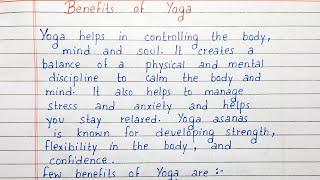 Benefits of Yoga
Yoga helps in controlling the body,
mind and soul. It creates a
balance of a physical and mental
discipline to calm the body and
mind. It also helps to manage
stress and anxiety and helps
you stay relaxed. Yoga asanas
is known for developing strength,
flexibility in the body, and
confidence.
Few benefits of Yoga are :-